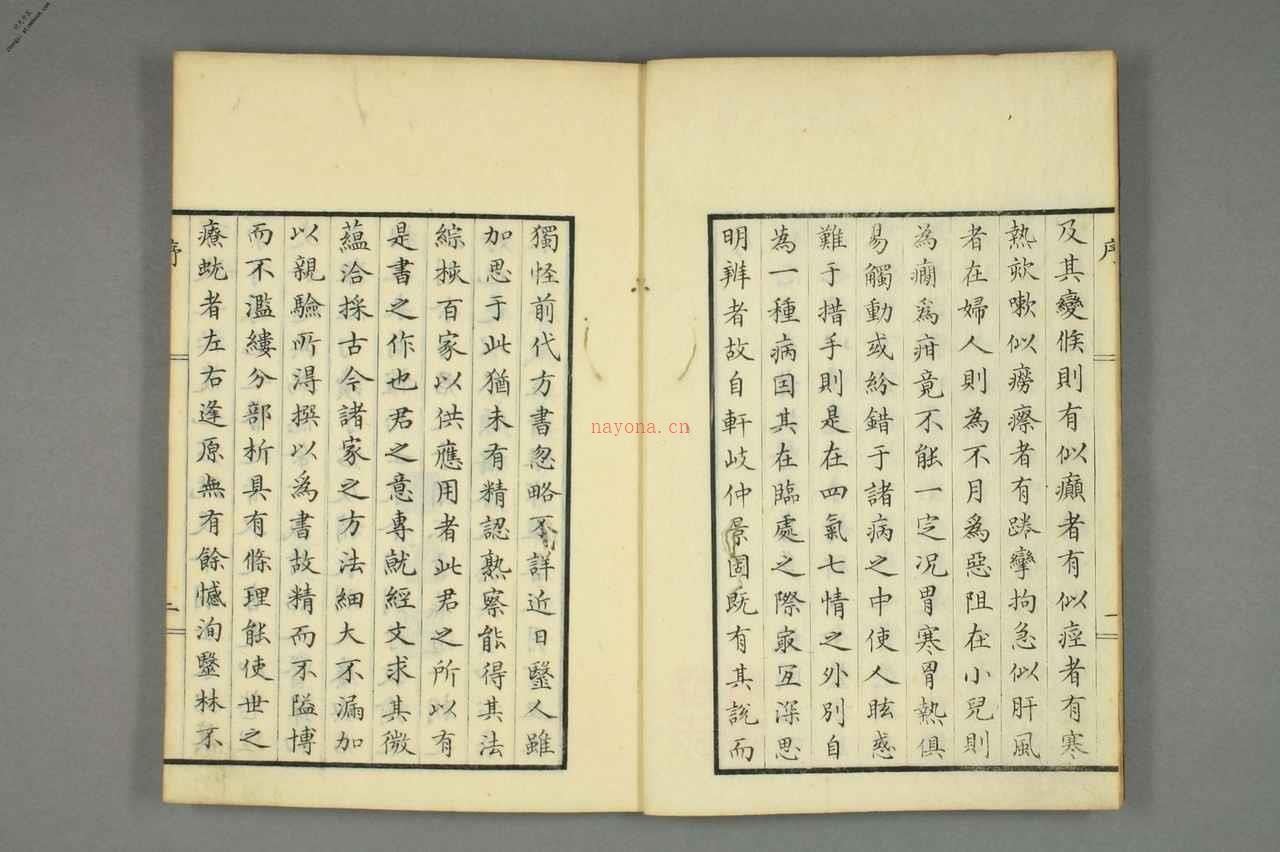 序
一
及其變候則有似癲者有似痙者有寒
熱欬嗽似癆瘵者有踡攣拘急似肝風
者在婦人則為不月爲惡阻在小兒則
為癇爲疳竟不能一定况胃寒胃熱俱
易觸動或紛錯于諸病之中使人眩惑
難于措手則是在四氣七情之外別自
為一種病因其在臨處之際最宜深思
明辨者故自軒岐仲景固既有其說而
獨怪前代方書忽略不詳近日毉人雖
加思于此猶未有精認熟察能得其法
綜挾百家以供應用者此君之所以有
是書之作也君之意專就經文求其微
蘊洽採古今諸家之方法細大不漏加
以親驗所得撰以爲書故精而不隘博
而不濫縷分部析具有條理能使世之
療蚘者左右逢原無有餘憾洵毉林不
序
二
nayona.cn